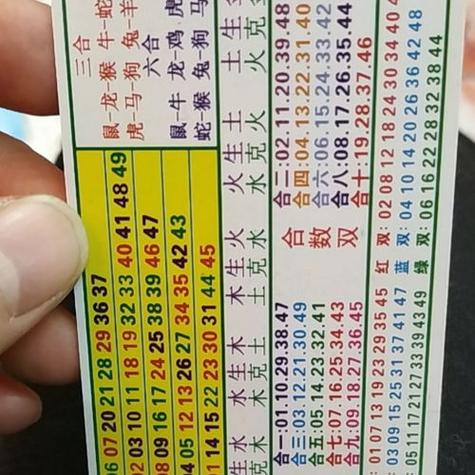 三合
鼠-龙-猴 牛-蛇
虎-马-狗 兔-羊
六合
鼠-牛 龙-鸡 虎
蛇-猴 兔-狗 马
06 07 20 21 28 29 36 37
02 03 10 11 18 19 32 33 40 41 48 49
08 09 16 17 24 25 38 39 46 47
04 05 12 13 26 27 34 35 42 43
01 14 15 22 23 30 31 44 45
生水 水生木 木生火 火生土 土生
克木 木克土 土克水 水克火 火克
合数双
合一:01.10.29.38.47 合二:02.11.20.39.48
合三:03.12.21.30.49 合四:04.13.22.31.40
合五:05.14.23.32.41 合六:06.15.24.33.42
合七:07.16.25.34.43 合八:08.17.26.35.44
合九:09.18.27.36.45 合十:19.28.37.46
01 07 13 19 23 29 35 45 红 双: 02 08 12 18 24 30 34 40
03 09 15 25 31 37 41 47 蓝 双: 04 10 14 20 26 36 42 48
05 11 17 21 27 33 39 43 49 绿 双: 06 16 22 28 32 38 44